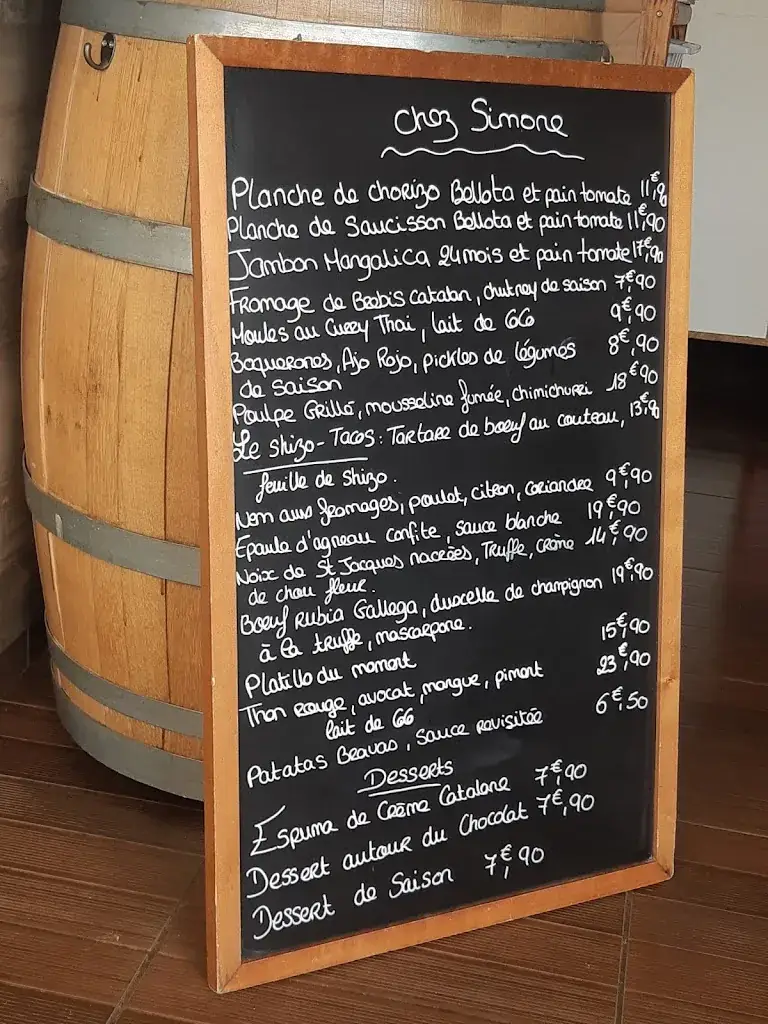 Chez Simone
Planche de chorizo Bellota et pain tomate 11€,90
Planche de Saucisson Bellota et pain tomate 11€,90
Jambon Mangalica 24 mois et pain tomate 17€,90
Fromage de Brebis catalan, chutney de saison 7€,90
Moules au Curry Thai, lait de GG 9€,90
Boquerones, Ajo Rojo, pickles de légumes 8€,90
de saison
Poulpe Grillé, mousseline fumée, chimichurri 18€90
Le Shizo-Tacos: Tartare de boeuf au couteau, 13€,90
feuille de Shizo.
Nem aux fromages, poulet, citron, coriandre 9€,90
Epaule d'agneau confite, sauce blanche 19€,90
Noix de St Jacques nacrées, Truffe, crème 14€,90
de chou fleur.
Boeuf Rubia Gallega, duxelle de champignon 19€,90
à la truffe, mascarpone.
Platillo du moment 15€,90
Thon rouge, avocat, mangue, piment 23€,90
lait de GG
Patatas Bravas, sauce revisitée 6€,50
Desserts
Espuma de Crème Catalane 7€,90
Dessert autour du Chocolat 7€,90
Dessert de Saison 7€,90